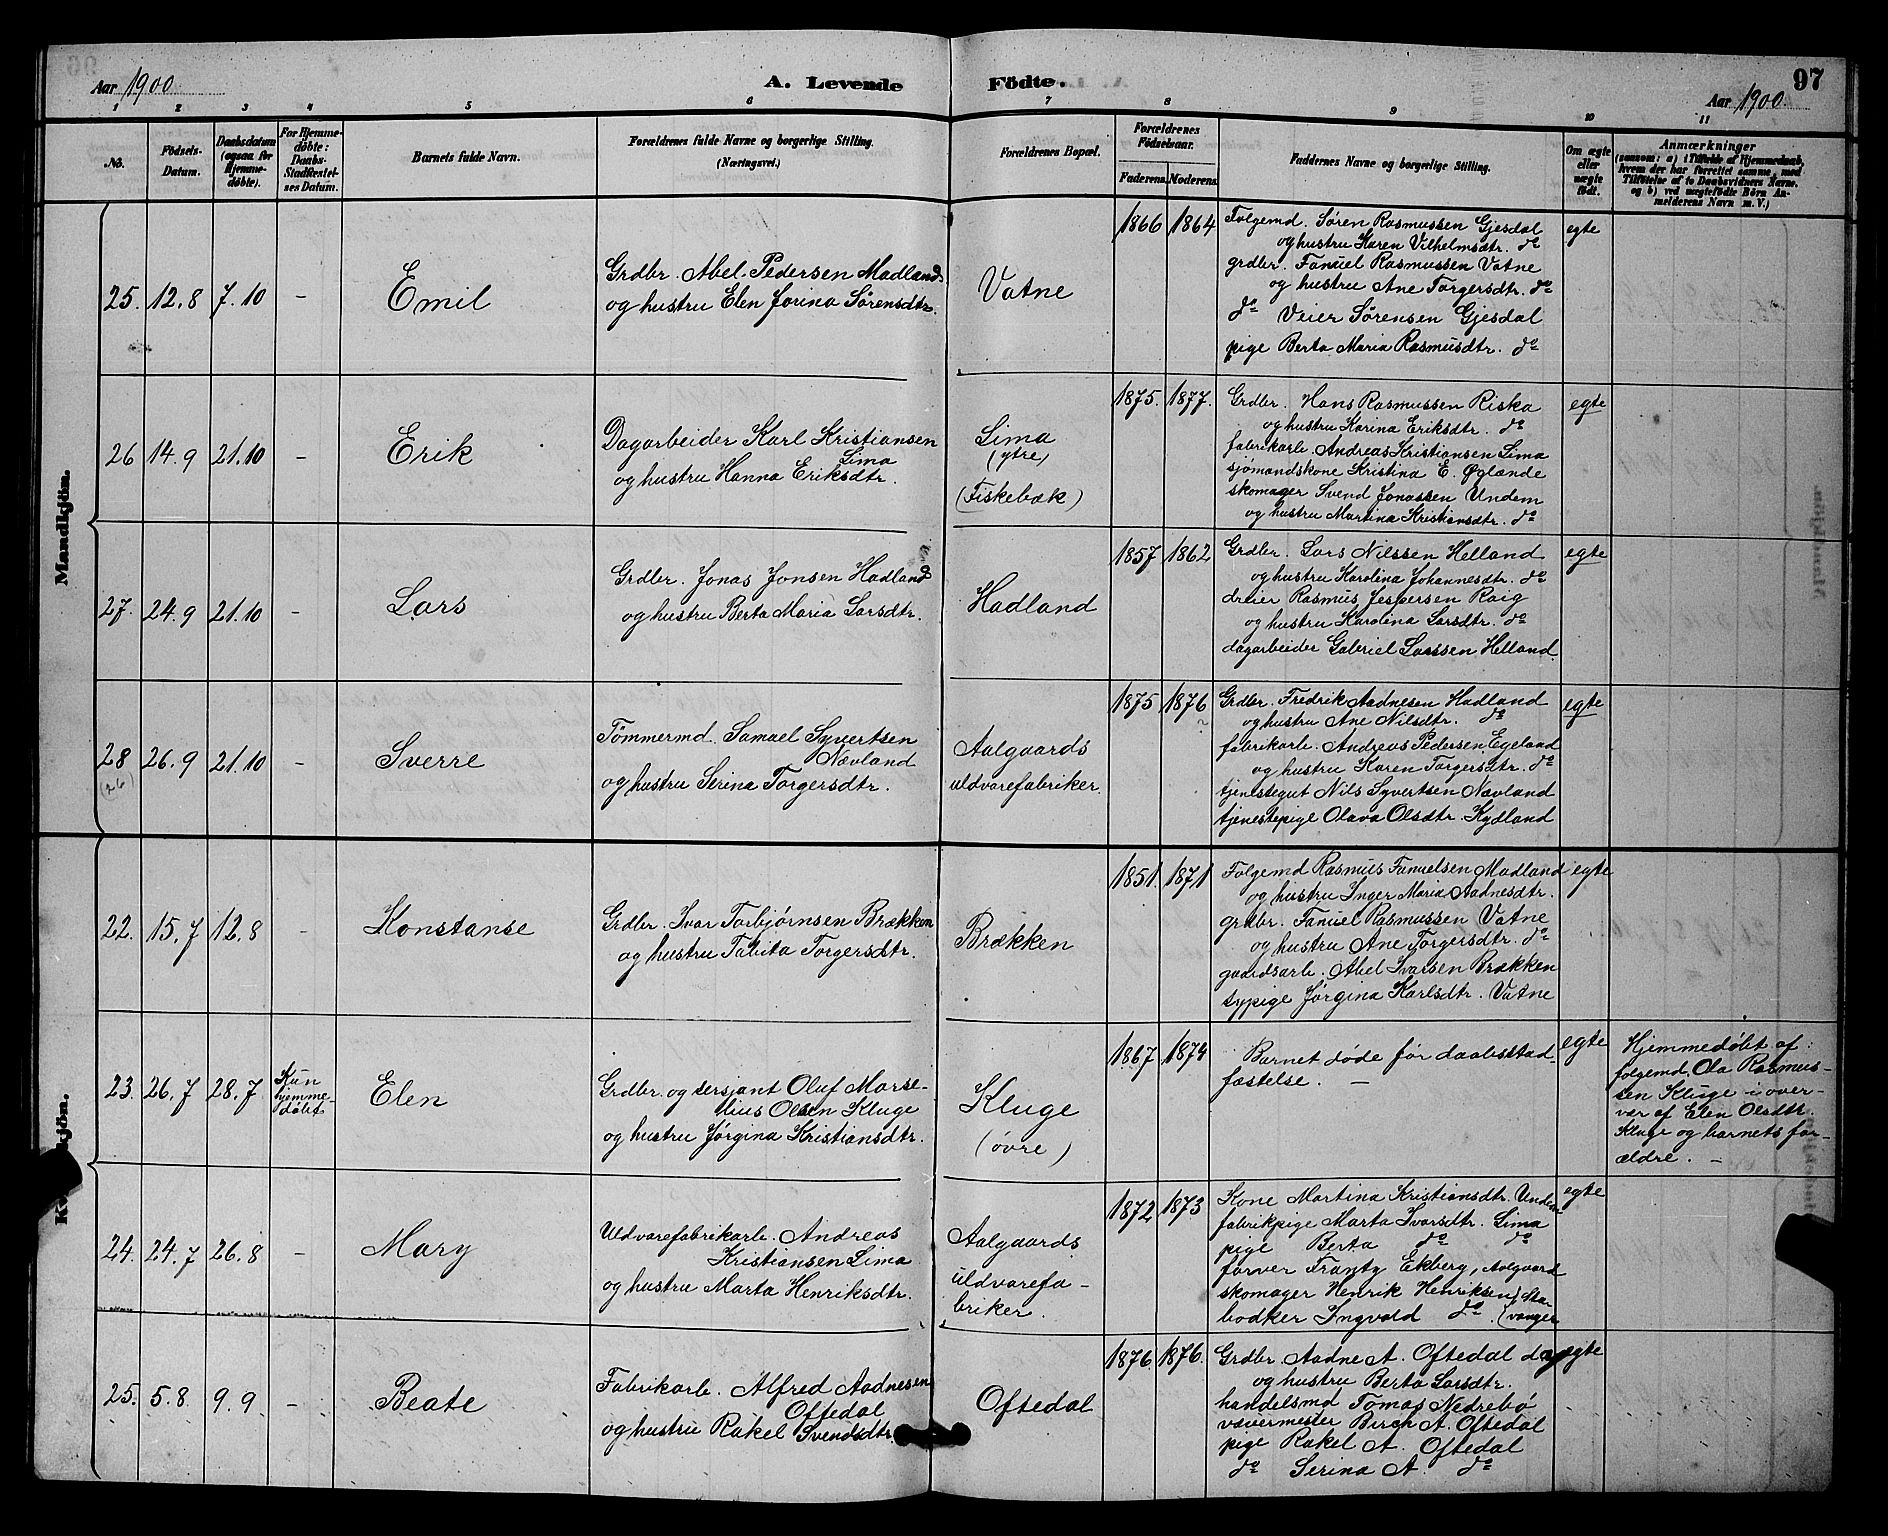 Aar 1900
A. Levende Födte.
97
Aar 1900.
1 2 3 4 5 6 7 8 9 10 11
No.
Födsels-
Datum.
Daabsdatum
(ogsaa for
Hjemme-
döbte).
For Hjemme-
döbte:
Daabs-
Stadfæstel-
ses Datum.
Barnets fulde Navn.
Forældrenes fulde Navne og borgerlige Stilling.
(Næringsvei.)
Forældrenes Bopæl.
Forældrenes
Födselsaar.
Faderens. Moderens.
Faddernes Navne og borgerlige Stilling.
Om ægte
eller
uægte
födt.
Anmærkninger
(saasom: a) i Tilfælde af Hjemmedaab,
hvem der har forrettet samme, med
Tilföielse af to Daabsvidners Navne,
og b) ved uægtefödte Börn An-
melderens Navn m. V.)
Mandkjön.
25. 12.8 7.10 - Emil
Grdbr. Abel Pedersen Madland
og hustru Elen Jorina Sörensdtr.
Vatne
1866 1864
Folgemd. Søren Rasmussen Gjesdal
og hustru Karen Vilhelmsdtr. do
grdbr. Fanuel Rasmussen Vatne
og hustru Ane Torgersdtr. do
do Veier Sørensen Gjesdal
pige Berta Maria Rasmusdtr. do
egte
26 14.9 21.10 - Erik
Dagarbeider Karl Kristiansen
Lima
og hustru Hanna Eriksdtr.
Lima
(ytre)
(Fiskebæk)
1875. 1877.
Grdbr. Hans Rasmussen Riska
og hustru Karina Eriksdtr. do
fabrikarb. Andreas Kristiansen Lima
sjømandskone Kristina E. Øglænde
skomager Svend Jonassen Undem
og hustru Martina Kristiansdtr. do
egte
27. 24.9 21.10 - Lars
Grdbr. Jonas Jonsen Hadland
og hustru Berta Maria Larsdtr.
Hadland
1857 1862
Grdbr. Lars Nilssen Helland
og hustru Karolina Johannesdtr. do
dreier Rasmus Jespersen Raig
og hustru Karolina Larsdtr. do
dagarbeider Gabriel Larssen Helland.
egte
28 26.9 21.10 - Sverre
(26)
Tömmermd. Samuel Syvertsen
Nævland
og hustru Serina Torgersdtr.
Aalgaards
uldvarefabriker.
1875 1876
Grdbr. Fredrik Aadnesen Hadland
og hustru Ane Nilsdtr. do
fabrikarb. Andreas Pedersen Egeland
og hustru Karen Torgersdtr. do
tjenestegut Nils Syvertsen Nævland
tjenestepige Olava Olsdtr. Kydland
egte
22. 15.7 12.8 - Konstanse
Grdbr. Ivar Torbjørnsen Brækken
og hustru Tabita Torgersdtr.
Brækken
1851. 1871
Folgemd Rasmus Fanuelsen Madland
og hustru Inger Maria Aadnesdtr.
grdbr. Fanuel Rasmussen Vatne
og hustru Ane Torgersdtr. do
gaardsarb. Abel Ivarsen Brækken
sypige Jørgina Karlsdtr. Vatne
egte
23. 26.7 28.7
Kun
hjemme-
døbt
Elen
Grdbr. og sersjant Oluf Marse-
lius Olsen Kluge
og hustru Jørgina Kristiansdtr.
Kluge
(övre)
1867 1874
Barnet døde før daabsstad-
fæstelse. -
egte
Hjemmedøbt af:
folgemd. Ola Rasmus-
sen Kluge i over-
vær af Elen Olsdtr.
Kluge og barnets for-
ældre. -
24. 24.7 26.8 - Mary
Uldvarefabrikarb. Andreas
Kristiansen Lima
og hustru Marta Henriksdtr.
Aalgaards
uldvarefa-
briker.
1872 1873
Kone Martina Kristiansdtr. Undem
fabrikpige Marta Ivarsdtr. Lima
pige Berta do do
farver Frantz Ekberg, Aalgaard
skomager Henrik Henriksen (Sta-
bødker Ingvald do. (vanger
egte
25. 5.8 9.9 - Beate
Fabrikarb. Alfred Aadnesen
Oftedal
og hustru Rakel Svendsdtr.
Oftedal
1876 1876.
Grdbr. Aadne A. Oftedal
og hustru Berta Larsdtr.
handelsmd Tomas Nedrebö
vævermester Birch A. Oftedal
pige Rakel A. Oftedal
do Serina A. do
egte